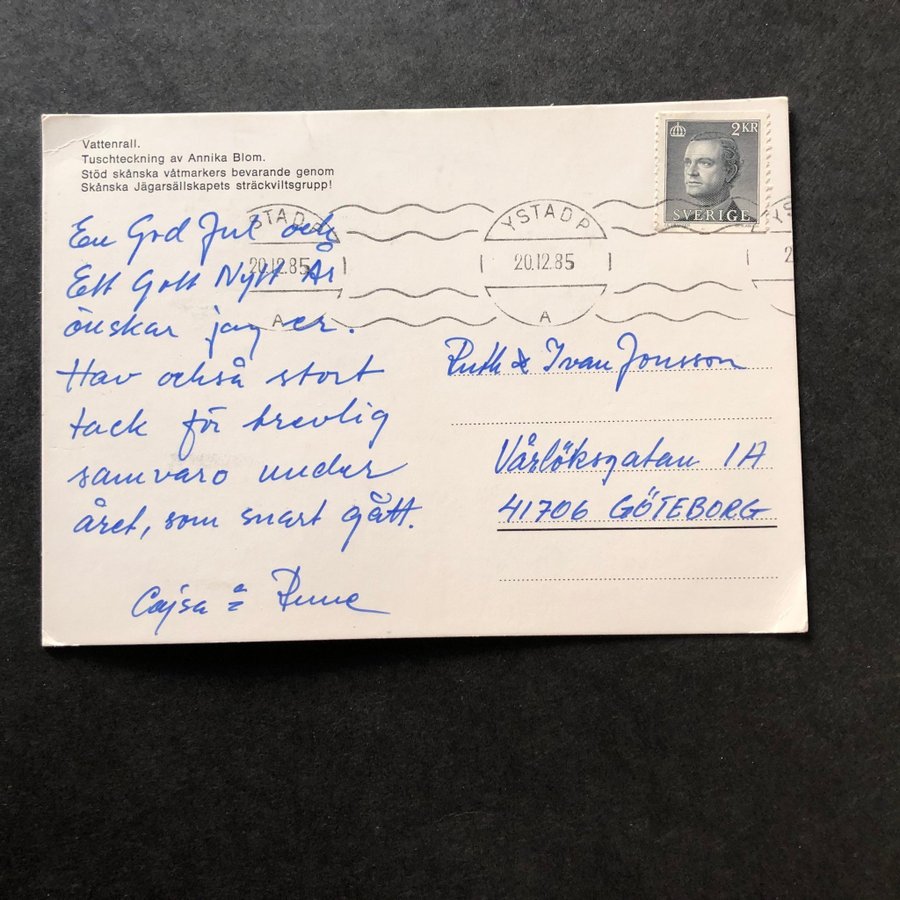 Vattenrall.
Tuschteckning av Annika Blom.
Stöd skånska våtmarkers bevarande genom
Skånska Jägarsällskapets sträckviltsgrupp!
2 KR
SVERIGE
YSTAD P
20.12.85
A
YSTAD P
20.12.85
A
YS
2
En God Jul och
Ett Gott Nytt År
önskar jag er.
Hav också stort
tack för trevlig
samvaro under
året, som snart gått.
Cajsa & Rune
Ruth & Ivan Jonsson
Vårlöksgatan 1A
41706 GÖTEBORG